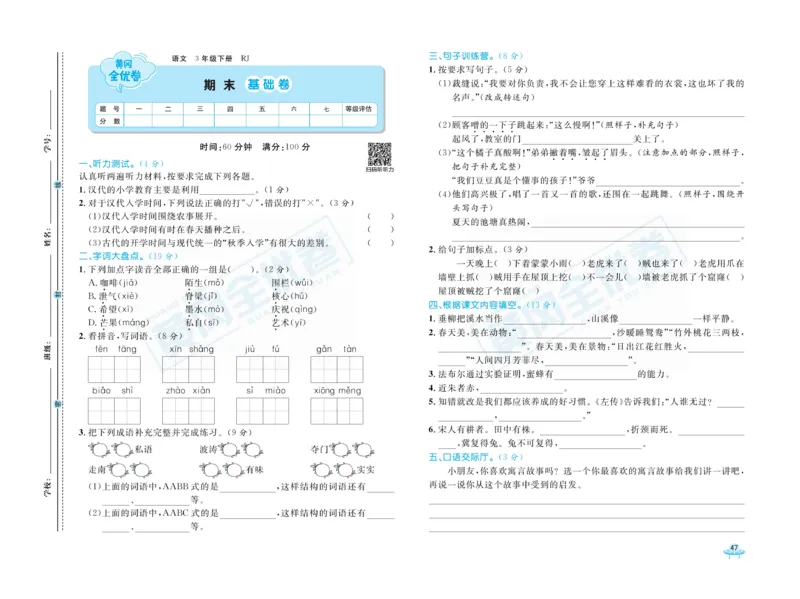 黄冈
全优卷
语文 3年级下册 RJ
期末 基础卷
题号 一 二 三 四 五 六 七 等级评估
分数
时间:60分钟 满分:100分
扫码听听力
学校:
班级:
姓名:
学号:
密
封
线
一、听力测试。(4分)
认真听两遍听力材料,按要求完成下列各题。
1.汉代的小学教育主要是利用____________。(1分)
2.对于汉代入学时间,下列说法正确的打“√”,错误的打“×”。(3分)
(1)汉代入学时间围绕农事展开。 ( )
(2)汉代入学时间有时在春天播种之后。 ( )
(3)古代的开学时间与现代统一的“秋季入学”有很大的差别。 ( )
二、字词大盘点。(19分)
1.下列加点字读音全部正确的一组是( )。(2分)
A.咖啡(jiā) 陌生(mò) 围栏(wéi)
B.泄气(xiè) 脊梁(jǐ) 核心(hú)
C.希望(xī) 墨水(mò) 庆祝(qìng)
D.芒果(máng) 私自(sī) 艺术(yì)
2.看拼音,写词语。(8分)
fēn fāng xīn shǎng jiù fǔ gǎn tàn
biǎo shì zhào xiàn sì miào xiōng měng
3.把下列成语补充完整并完成练习。(9分)
私语 波涛 夺门
走南 有味 实实
(1)上面的词语中,AABB式的是____________,这样结构的词语还有______
______、____________等。
(2)上面的词语中,AABC式的是____________,这样结构的词语还有______
______、____________等。
三、句子训练营。(8分)
1.按要求写句子。(5分)
(1)裁缝说:“我要对你负责,我不会让您穿上这样难看的衣裳,这也坏了我的
名声。”(改成转述句)
(2)顾客噌的一下子跳起来:“这么慢啊!”(照样子,补充句子)
起风了,教室的门____________关上了。
(3)“这个橘子真酸啊!”弟弟撇着嘴,皱起了眉头。(注意加点的部分,照样子,
把句子补充完整)
“我们豆豆真是个懂事的孩子!”爷爷____________。
(4)他们高兴极了,唱了一首又一首的歌,还围在一起跳舞。(照样子,围绕开
头写句子)
夏天的池塘真热闹,____________
____________。
2.给句子加标点。(3分)
一天晚上( )下着蒙蒙小雨( )老虎来了( )贼也来了( )老虎用爪在
墙壁上抓( )贼用手在屋顶上挖( )不一会儿( )墙被老虎抓了个窟窿( )
屋顶被贼挖了个窟窿( )
四、根据课文内容填空。(13分)
1.垂柳把溪水当作____________,山溪像____________一样平静。
2.春天美,美在动物:“____________,沙暖睡鸳鸯”“竹外桃花三两枝,
____________”。春天美,美在景物:“日出江花红胜火,____________
______”“人间四月芳菲尽,____________”。
3.法布尔通过实验证明,蜜蜂有____________的能力。
4.近朱者赤,____________。
5.知错就改是我们都应该养成的好习惯。《左传》告诉我们:“人谁无过?______
____________,____________。”
6.宋人有耕者。田中有株。____________,折颈而死。____________
____,冀复得兔。兔不可复得,____________。
五、口语交际厅。(3分)
小朋友,你喜欢寓言故事吗?选一个你最喜欢的寓言故事给我们讲一讲吧,
再说一说你从这个故事中受到的启发。
47